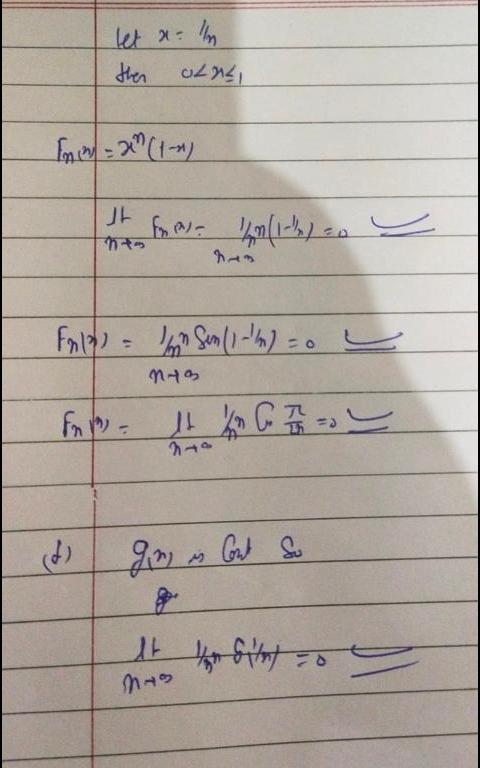 let x = 1/n
then 0<x≤1
Fn(x) = x^n(1-x)
lt n→∞ Fn(x) = n→∞ 1/n^n(1-1/n) = 0
Fn(x) = n→∞ 1/n^n Sin(1-1/n) = 0
Fn(x) = lt n→∞ 1/n^n Cos π/2n = 0
(d) g(x) is Cont So
lt n→∞ 1/n^n g(1/n) = 0